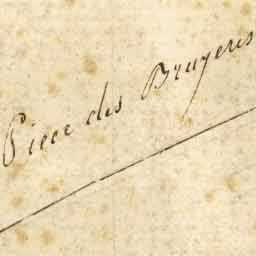 Piece des Bruyeres